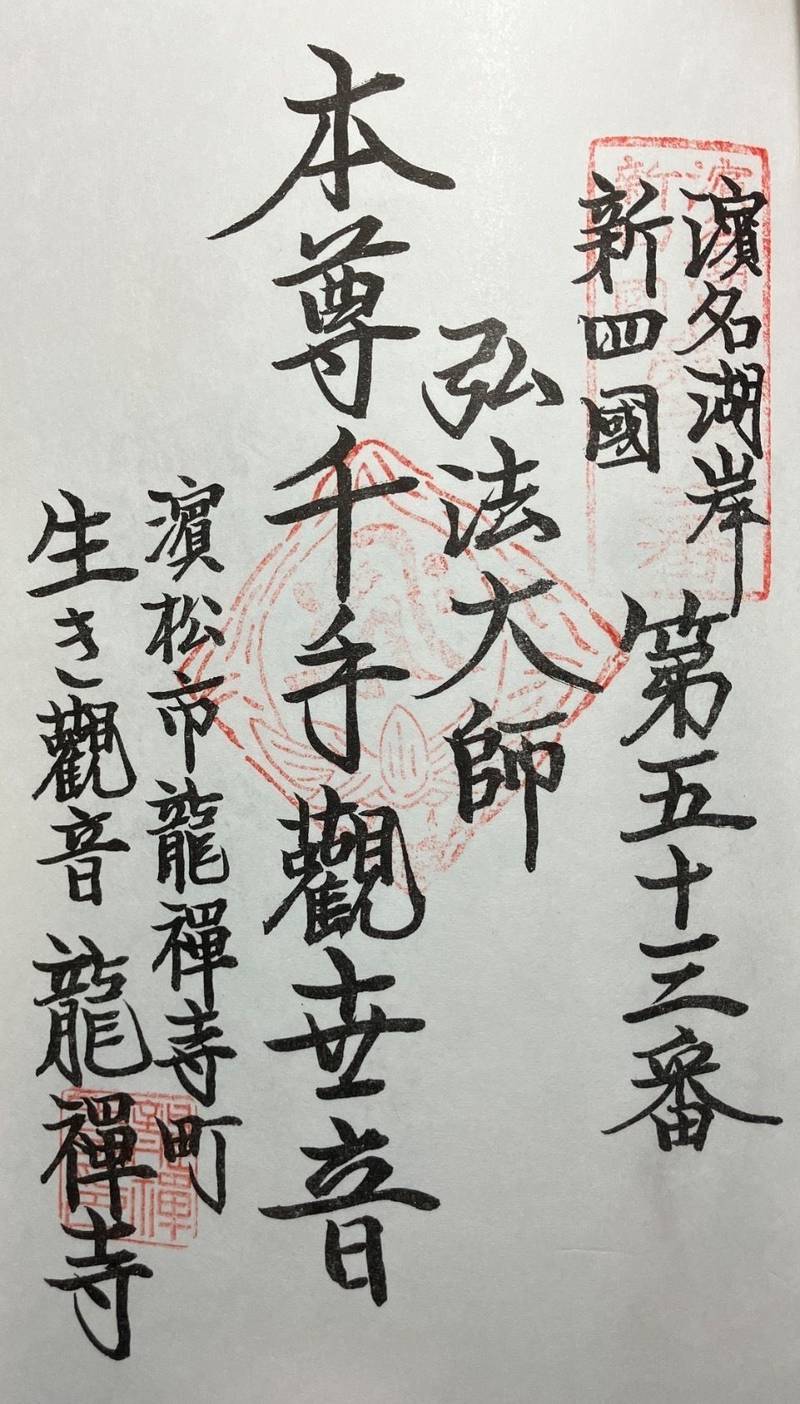 濱名湖岸
新四國
第五十三番
弘法大師
本尊千手觀世音
濱松市龍禪寺町
生き觀音 龍禪寺